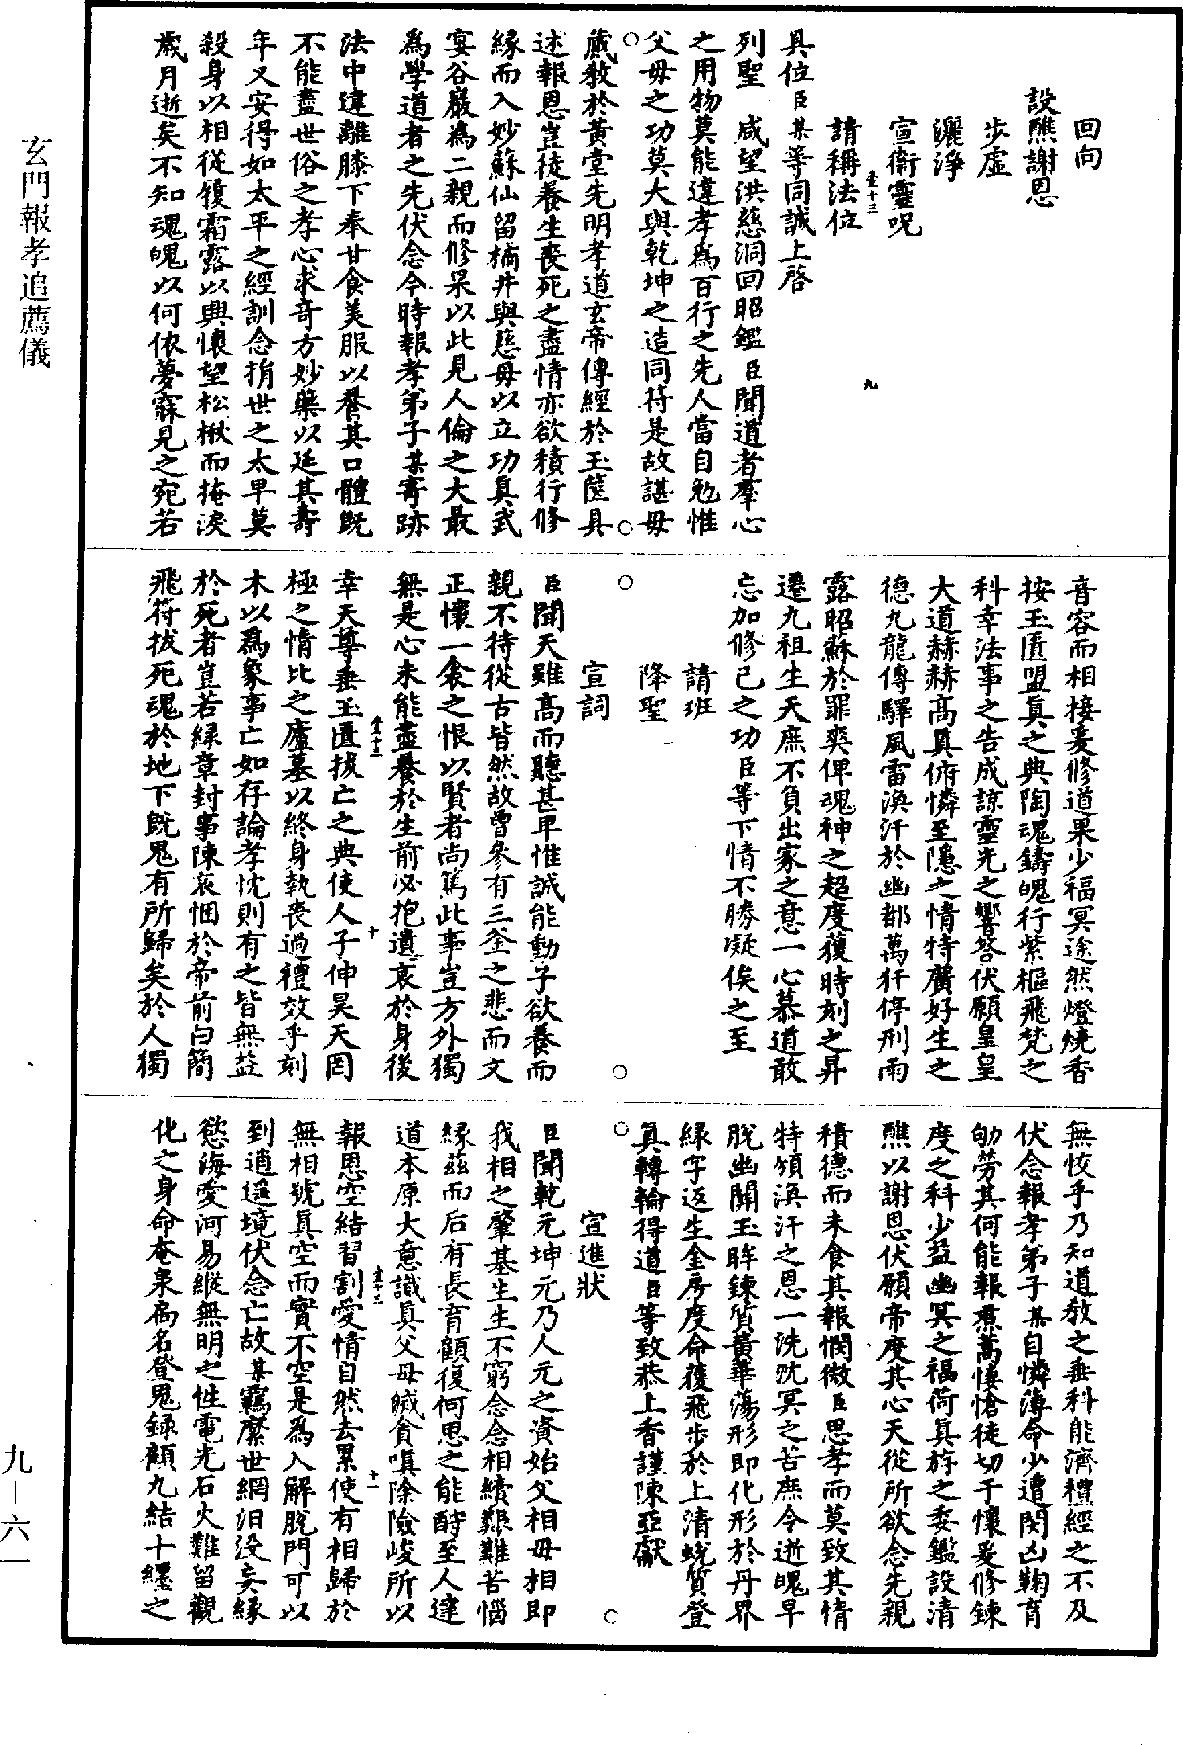 回向
設醮謝恩
步虛
灑淨
宣衛靈呪
請稱法位
具位臣某等同誠上啓
列聖 咸望洪慈洞回昭鑑臣聞道者羣心
之用物莫能違孝爲百行之先人當自勉惟
父母之功莫大與乾坤之造同符是故諶母
藏教於黃堂先明孝道玄帝傳經於玉篋具
述報恩豈徒養生喪死之盡情亦欲積行修
緣而入妙蘇仙留橘井與慈母以立功真武
宴谷巖爲二親而修果以此見人倫之大最
爲學道者之先伏念今時報孝弟子某寄跡
法中違離膝下奉甘食美服以養其口體既
不能盡世俗之孝心求奇方妙藥以延其壽
年又安得如太平之經訓念捐世之太早莫
殺身以相從履霜露以興懷望松楸而掩淚
歲月逝矣不知魂魄以何依夢寐見之宛若
音容而相接爰修道果少福冥途然燈燒香
按玉匱盟真之典陶魂鑄魄行紫樞飛梵之
科幸法事之告成諒靈光之響答伏願皇皇
大道赫赫高真俯憐至隱之情特廣好生之
德九龍傳驛風雷渙汗於幽都萬犴停刑雨
露昭蘇於罪爽俾魂神之超度獲時刻之昇
遷九祖生天庶不負出家之意一心慕道敢
忘加修己之功臣等下情不勝凝俟之至
請班
降聖
宣詞
臣聞天雖高而聽甚卑惟誠能動子欲養而
親不待從古皆然故曾參有三釜之悲而文
正懷一衾之恨以賢者尚篤此事豈方外獨
無是心未能盡養於生前必抱遺哀於身後
幸天尊垂玉匱拔亡之典使人子伸昊天罔
極之情比之廬墓以終身執喪過禮效乎刻
木以爲象事亡如存論孝忱則有之皆無益
於死者豈若綠章封事陳哀悃於帝前白簡
飛符拔死魂於地下既鬼有所歸矣於人獨
無恔乎乃知道教之垂科能濟禮經之不及
伏念報孝弟子某自憐薄命少遭閔凶鞠育
劬勞其何能報焄蒿悽愴徒切于懷爰修鍊
度之科少益幽冥之福荷真斿之委鑑設清
醮以謝恩伏願帝度其心天從所欲念先親
積德而未食其報憫微臣思孝而莫致其情
特頒渙汗之恩一洗沈冥之苦庶令逝魄早
脫幽關玉眸鍊質黃華蕩形即化形於丹界
綠字返生金房度命復飛步於上清蛻質登
真轉輪得道臣等致恭上香謹陳亞獻
宣進狀
臣聞乾元坤元乃人元之資始父相母相即
我相之肇基生生不窮念念相續艱難苦惱
緣茲而后有長育顧復何思之能酧至人達
道本原大意識真父母滅貪嗔除險峻所以
報恩空結習割愛情自然去累使有相歸於
無相號真空而實不空是爲入解脫門可以
到逍遥境伏念亡故某羈縻世網汨没妄緣
慾海愛河易縱無明之性電光石火難留觀
化之身命奄泉扃名登鬼録顧九結十纏之
玄門報孝追薦儀
九—六一